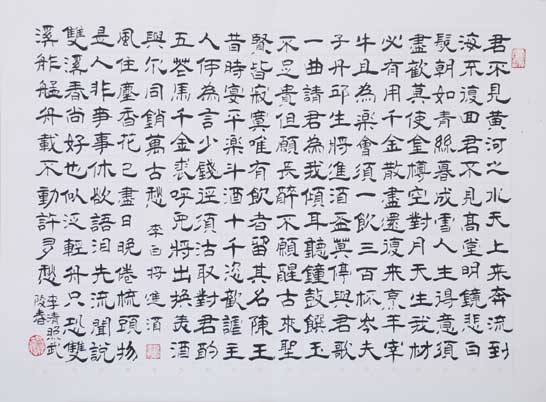 君不見黃河之水天上來奔流到
海不復回君不見高堂明鏡悲白
髮朝如青絲暮成雪人生得意須
盡歡莫使金樽空對月天生我材
必有用千金散盡還復來烹羊宰
牛且為樂會須一飲三百杯岑夫
子丹邱生將進酒盃莫停與君歌
一曲請君為我傾耳聽鐘鼓饌玉
不足貴但願長醉不願醒古來聖
賢皆寂寞唯有飲者留其名陳王
昔時宴平樂斗酒十千恣歡謔主
人何為言少錢徑須沽取對君酌
五花馬千金裘呼兒將出換美酒
與尔同銷萬古愁 李白將進酒
風住塵香花已盡日晚倦梳頭物
是人非事事休欲語泪先流聞說
雙溪春尚好也似泛輕舟只恐雙
溪舴艋舟載不動許多愁
李清照武
陵春